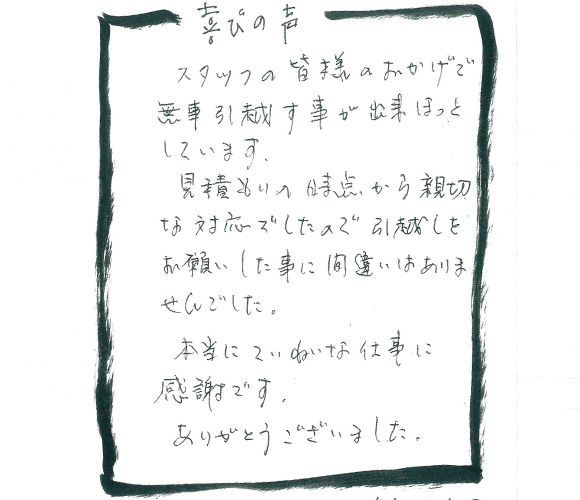 喜びの声
スタッフの皆様のおかげで
無事引越す事が出来ほっと
しています。
見積もりの時点から親切
な対応でしたので引越しを
お願いした事に間違いはありま
せんでした。
本当にていねいな仕事に
感謝です。
ありがとうございました。